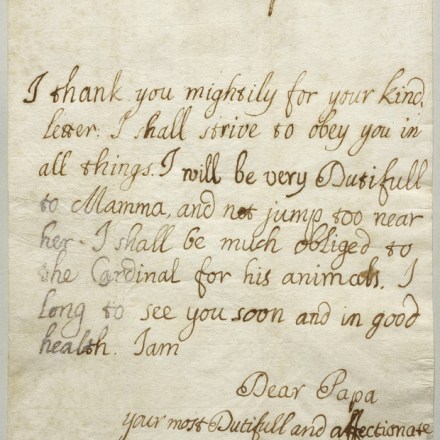 I thank you mightily for your kind
letter. I shall strive to obey you in
all things. I will be very Dutifull
to Mamma, and not jump too near
her. I shall be much obliged to
the Cardinal for his animals. I
long to see you soon and in good
health. Iam
Dear Papa
your most Dutifull and affectionate